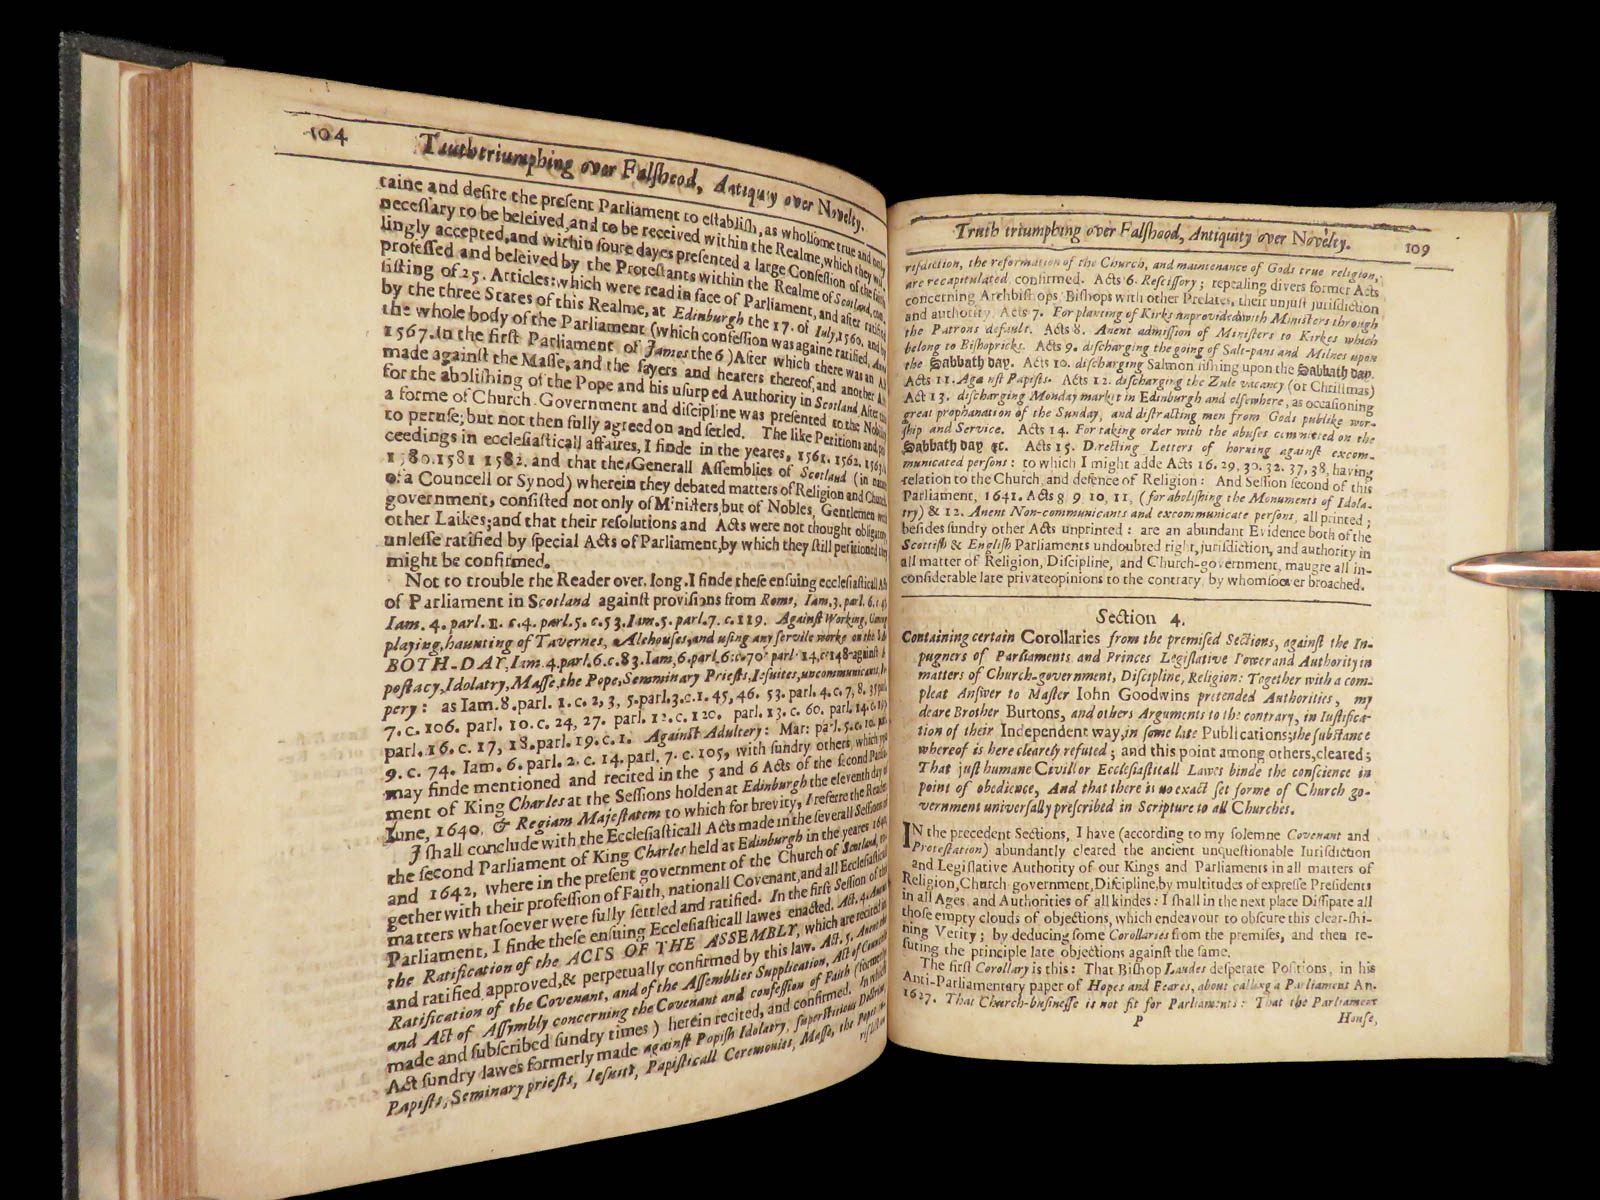 104 Truth triumphing over Falshood, Antiquity over Novelty.
taine and desire the present Parliament to establish, as wholsome true and only
necessary to be beleived, and to be received within the Realme, which they wil-
lingly accepted, and within foure dayes presented a large Confession of the faith
professed and beleived by the Protestants within the Realme of Scotland, con-
sisting of 25. Articles: which were read in face of Parliament, and after ratified
by the three States of this Realme, at Edinburgh the 17. of Iuly, 1560. and by
the whole body of the Parliament (which confession was againe ratified, Anno
1567. in the first Parliament of James the 6) After which there was an A
made against the Masse, and the sayers and hearers thereof, and another A
for the abolishing of the Pope and his usurped Authority in Scotland After this
a forme of Church Government and discipline was presented to the Nobility
to peruse; but not then fully agreed on and setled. The like Petitions and
ceedings in ecclesiasticall affaires, I finde in the yeares, 1561. 1562. 1563.
1580. 1581 1582. and that the Generall Assemblies of Scotland (in nature
of a Councell or Synod) wherein they debated matters of Religion and Church
government, consisted not only of Ministers but of Nobles, Gentlemen with
other Laikes; and that their resolutions and Acts were not thought obligatory
unlesse ratified by special Acts of Parliament, by which they still petitioned they
might be confirmed.
Not to trouble the Reader over. long. I finde these ensuing ecclesiasticall A
of Parliament in Scotland against provisions from Rome, Iam, 3. parl. 6. c 4
Iam. 4. parl. 1. c. 4. parl. 5. c. 53. Iam. 5. parl. 7. c. 119. Against Working,
playing, haunting of Tavernes, Alehouses, and using any servile worke on the S
BOTH-DAY, Iam. 4. parl. 6. c. 83. Iam, 6. parl. 6. c. 70 parl. 14, c. 148. against
postacy, Idolatry, Masse, the Pope, Semminary Priests, Iesuites, uncommunicants,
pery: as Iam. 8. parl. 1. c. 2, 3, 5. parl. 3. c. 1. 45, 46. 53. parl. 4. c. 7, 8. 35
7. c. 106. parl. 10. c. 24, 27. parl. 12. c. 120. parl. 13. c. 60. parl. 14. c.
parl. 16. c. 17, 18. parl. 19. c. 1. Against Adultery: Mar: parl. 5. c. 10.
9. c. 74. Iam. 6. parl. 2. c. 14. parl. 7. c. 105, with sundry others, which you
may finde mentioned and recited in the 5 and 6 Acts of the second Parlia-
ment of King Charles at the Sessions holden at Edinburgh the eleventh day of
Iune, 1640. & Regiam Majestatem to which for brevity, I referre the Reader
I shall conclude with the Ecclesiasticall Acts made in the severall Sessions of
the second Parliament of King Charles held at Edinburgh in the yeares 1640
and 1642, where in the present government of the Church of Scotland,
gether with their profession of Faith, nationall Covenant, and all Ecclesiasticall
matters whatsoever were fully settled and ratified. In the first Session of this
Parliament, I finde these ensuing Ecclesiasticall lawes enacted. Act. 4. Anent
the Ratification of the ACTS OF THE ASSEMBLY, which are recited in
and ratified approved, & perpetually confirmed by this law. Act. 5. Anent the
Ratification of the Covenant, and of the Assemblies Supplication, Act of Councell
and Act of Assembly concerning the Covenant and confession of Faith (formerly
made and subscribed sundry times) herein recited, and confirmed. In which
Act sundry lawes formerly made against Popish Idolatry, superstitious Doctrine,
Papists, Seminary priests, Iesuits, Papisticall Ceremonies, Masse, the Popes
risdiction
Truth triumphing over Falshood, Antiquity over Novelty. 109
risdiction, the reformation of the Church, and maintenance of Gods true religion,
are recapitulated confirmed. Acts 6. Rescissory; repealing divers former Acts
concerning Archbishops, Bishops with other Prelates, their unjust jurisdiction
and authority Acts 7. For planting of Kirks unprovided with Ministers through
the Patrons default. Acts 8. Anent admission of Ministers to Kirkes which
belong to Bishopricks. Acts 9. discharging the going of Salt-pans and Milnes upon
the Sabbath day. Acts 10. discharging Salmon fishing upon the Sabbath day.
Acts 11. Against Papists. Acts 12. discharging the Zule vacancy (or Christmas)
Act 13. discharging Monday market in Edinburgh and elsewhere, as occasioning
great prophanation of the Sunday, and distracting men from Gods publike wor-
ship and Service. Acts 14. For taking order with the abuses committed on the
Sabbath day &c. Acts 15. Directing Letters of horning against excom-
municated persons: to which I might adde Acts 16. 29, 30. 32. 37, 38, having
relation to the Church, and defence of Religion: And Session second of this
Parliament, 1641. Acts 8 9. 10, 11, (for abolishing the Monuments of Idola-
try) & 12. Anent Non-communicants and excommunicate persons, all printed;
besides sundry other Acts unprinted: are an abundant Evidence both of the
Scottish & English Parliaments undoubted right, jurisdiction, and authority in
all matter of Religion, Discipline, and Church-government, maugre all in-
considerable late private opinions to the contrary, by whomsoever broached.
Section 4.
Containing certain Corollaries from the premised Sections, against the Im-
pugners of Parliaments and Princes Legislative Power and Authority in
matters of Church-government, Discipline, Religion: Together with a com-
pleat Answer to Master Iohn Goodwins pretended Authorities, my
deare Brother Burtons, and others Arguments to the contrary, in Iustifica-
tion of their Independent way, in some late Publications; the substance
whereof is here clearely refuted; and this point among others, cleared;
That just humane Civill or Ecclesiasticall Lawes binde the conscience in
point of obedience, And that there is no exact set forme of Church go-
vernment universally prescribed in Scripture to all Churches.
IN the precedent Sections, I have (according to my solemne Covenant and
Protestation) abundantly cleared the ancient unquestionable Iurisdiction
and Legislative Authority of our Kings and Parliaments in all matters of
Religion, Church government, Discipline, by multitudes of expresse Presidents
in all Ages, and Authorities of all kindes: I shall in the next place Dissipate all
those empty clouds of objections, which endeavour to obscure this clear-shi-
ning Verity; by deducing some Corollaries from the premises, and then re-
futing the principle late objections against the same.
The first Corollary is this: That Bishop Laudes desperate Positions, in his
Anti-Parliamentary paper of Hopes and Feares, about calling a Parliament An.
1627. That Church-businesse is not fit for Parliaments: That the Parliament
P House,